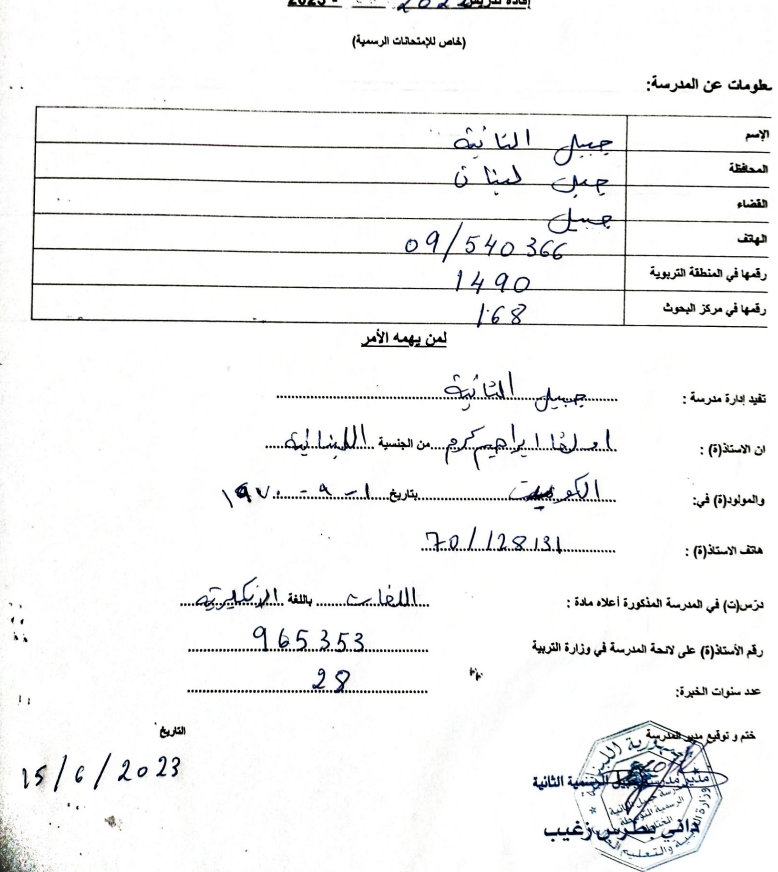 إفادة تدريس 2022 - 2023
(خاص للإمتحانات الرسمية)
معلومات عن المدرسة:
الإسم جبيل الثانية
المحافظة جبل لبنان
القضاء جبيل
الهاتف 09/540366
رقمها في المنطقة التربوية 1490
رقمها في مركز البحوث 168
لمن يهمه الأمر
تفيد إدارة مدرسة : جبيل الثانية
ان الاستاذ(ة) : اولغا ابراهيم كرم من الجنسية اللبنانية
والمولود(ة) في: الكويت بتاريخ ١ - ٩ - ١٩٧٠
هاتف الاستاذ(ة) : 70/128131
درّس(ت) في المدرسة المذكورة أعلاه مادة : اللغات باللغة الإنكليزية
رقم الأستاذ(ة) على لائحة المدرسة في وزارة التربية 965353
عدد سنوات الخبرة: 28
ختم و توقيع مدير المدرسة التاريخ
15/6/2023
مدير مدرسة جبيل الرسمية الثانية
داني بطرس زغيب